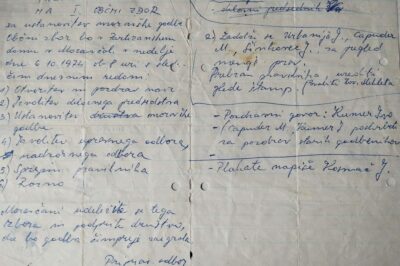 NA I. OBČNI ZBOR
za ustanovitev moravške godbe
Občni zbor bo v Zadružnem
domu v Moravčah, v nedeljo
dne 6.10.1974 ob uri s sle-
dečim dnevnim redom:
1) Otvoritev in pozdrav navz.
2) Izvolitev delovnega predsedstva
3) Ustanovitev društva moravške
godba
4) Izvolitev upravnega odbora,
nadzornega odbora
5) Sprejem pravilnika
6) Razno
Moravčani udeležite se tega
zbora in podprite društvo,
da bo godba čimpreje zaigrala.
Priprav. odbor
delovni predsednik
2) Zadolži se Urbanija J., Capuder
M., za pregled
prav.
pravilnika
glede štamp.
- Pozdravni govor: Kumer Ivo
- Capuder M., Kumer J.
za pozdrav starih godbenikov
- Plakate napiše Kosmač J.